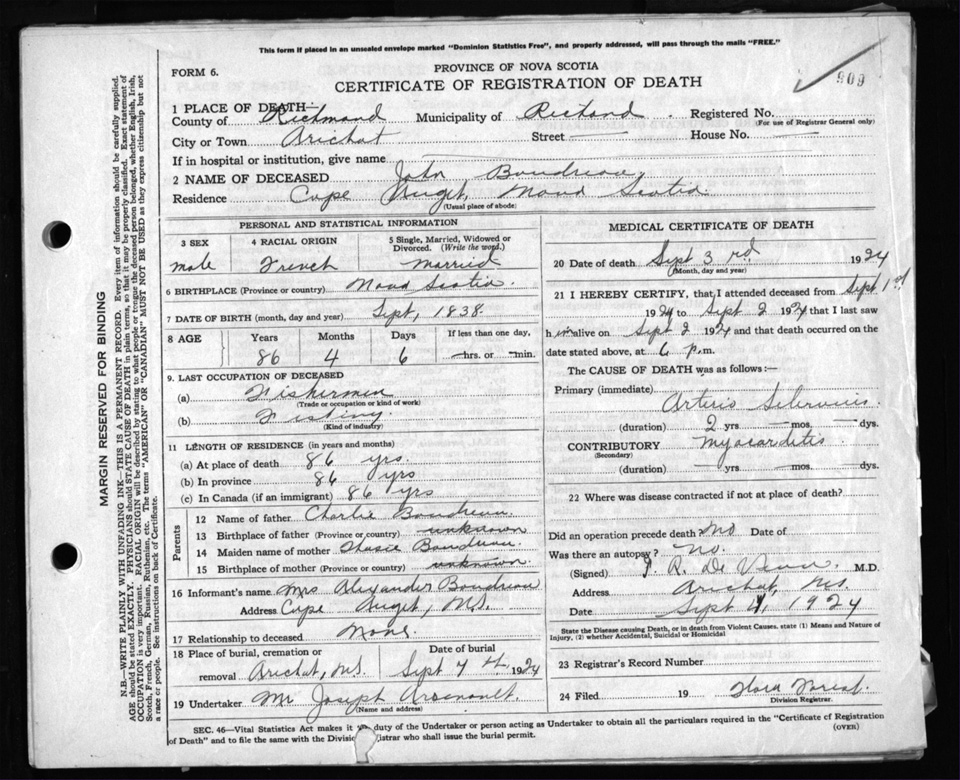 This form if placed in an unsealed envelope marked "Dominion Statistics Free", and properly addressed, will pass through the mails "FREE."
FORM 6.
PROVINCE OF NOVA SCOTIA
CERTIFICATE OF REGISTRATION OF DEATH
909
1 PLACE OF DEATH—
County of Richmond Municipality of Registered No.
(For use of Registrar General only)
City or Town Arichat Street — House No. —
If in hospital or institution, give name
2 NAME OF DECEASED John Boudreau
Residence Cape Auget, Nova Scotia.
(Usual place of abode)
PERSONAL AND STATISTICAL INFORMATION
3 SEX 4 RACIAL ORIGIN 5 Single, Married, Widowed or Divorced. (Write the word.)
male French married
6 BIRTHPLACE (Province or country) Nova Scotia.
7 DATE OF BIRTH (month, day and year) Sept, 1838.
8 AGE Years Months Days If less than one day,
86 4 6 —hrs. or —min.
9. LAST OCCUPATION OF DECEASED
(a) Fishermen
(Trade or occupation or kind of work)
(b) Fishing
(Kind of industry)
11 LENGTH OF RESIDENCE (in years and months)
(a) At place of death 86 yrs.
(b) In province 86 yrs
(c) In Canada (if an immigrant) 86 yrs
Parents
12 Name of father Charlie Boudreau
13 Birthplace of father (Province or country) unknown
14 Maiden name of mother Boudreau
15 Birthplace of mother (Province or country) unknown
16 Informant's name Mrs Alexander Boudreau
Address Cape Auget, N.S.
17 Relationship to deceased None.
18 Place of burial, cremation or removal Date of burial
Arichat, N.S Sept 4th, 1924
19 Undertaker Mr Joseph Arsenault
(Name and address)
MEDICAL CERTIFICATE OF DEATH
20 Date of death Sept 3rd 1924
(Month, day and year)
21 I HEREBY CERTIFY, that I attended deceased from Sept 1st
1924 to Sept 2 1924 that I last saw
him alive on Sept 2 1924 and that death occurred on
date stated above, at 6 p.m.
The CAUSE OF DEATH was as follows:—
Primary (immediate)
Arterio Sclerosis.
(duration) 2 yrs —mos. —dys.
CONTRIBUTORY Myocarditis
(Secondary)
(duration) —yrs —mos. —dys.
22 Where was disease contracted if not at place of death?
Did an operation precede death No Date of
Was there an autopsy? No.
(Signed) M.D.
Address Arichat, N.S.
Date Sept 4, 1924
State the Disease causing Death, or in death from Violent Causes, state (1) Means and Nature of Injury, (2) whether Accidental, Suicidal or Homicidal
23 Registrar's Record Number
24 Filed 19
Division Registrar.
SEC. 46—Vital Statistics Act makes it duty of the Undertaker or person acting as Undertaker to obtain all the particulars required in the "Certificate of Registration
of Death" and to file the same with the Division Registrar who shall issue the burial permit.
(OVER)
MARGIN RESERVED FOR BINDING
N.B.—WRITE PLAINLY WITH UNFADING INK—THIS IS A PERMANENT RECORD. Every item of information should be carefully supplied.
AGE should be stated EXACTLY. PHYSICIANS should STATE CAUSE OF DEATH in plain terms, so that it may be properly classified. Exact statement of
OCCUPATION is very important. RACIAL ORIGIN will be described by stating to what people or tongue the deceased person belonged, whether English, Irish,
Scotch, French, German, Russian, Ruthenian, etc. The terms "AMERICAN" OR "CANADIAN" MUST NOT BE USED as they express citizenship but not
a race or people. See instructions on back of Certificate.